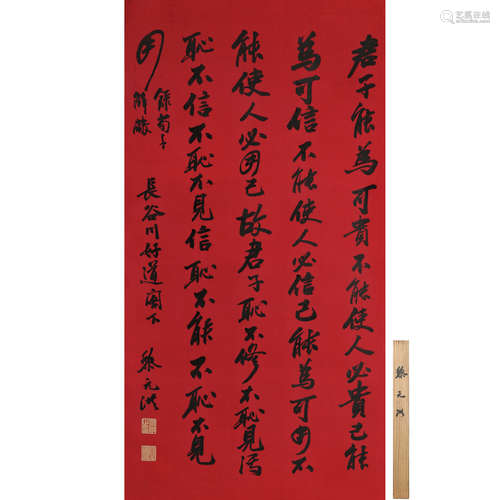 君子能為可貴不能使人必貴己能
為可信不能使人必信己能為可用不
能使人必用己故君子恥不修不恥見污
恥不信不恥不見信恥不能不恥不見
用
錄荀子
解蔽
長谷川好道閣下
黎元洪
黎元洪